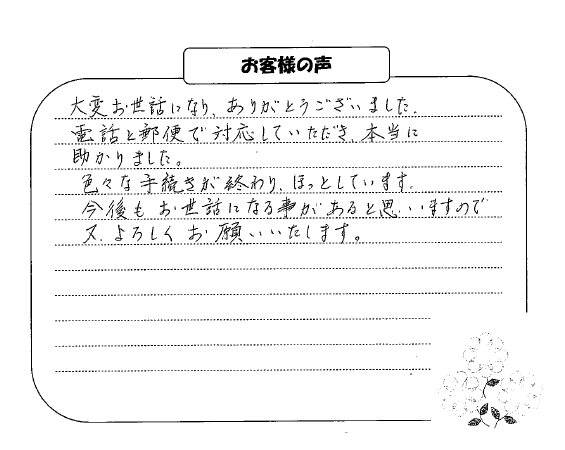 お客様の声
大変お世話になり、ありがとうございました.
電話と郵便で対応していただき、本当に
助かりました。
色々な手続きが終わり、ほっとしています.
今後もお世話になる事があると思いますので
又、よろしくお願いいたします。